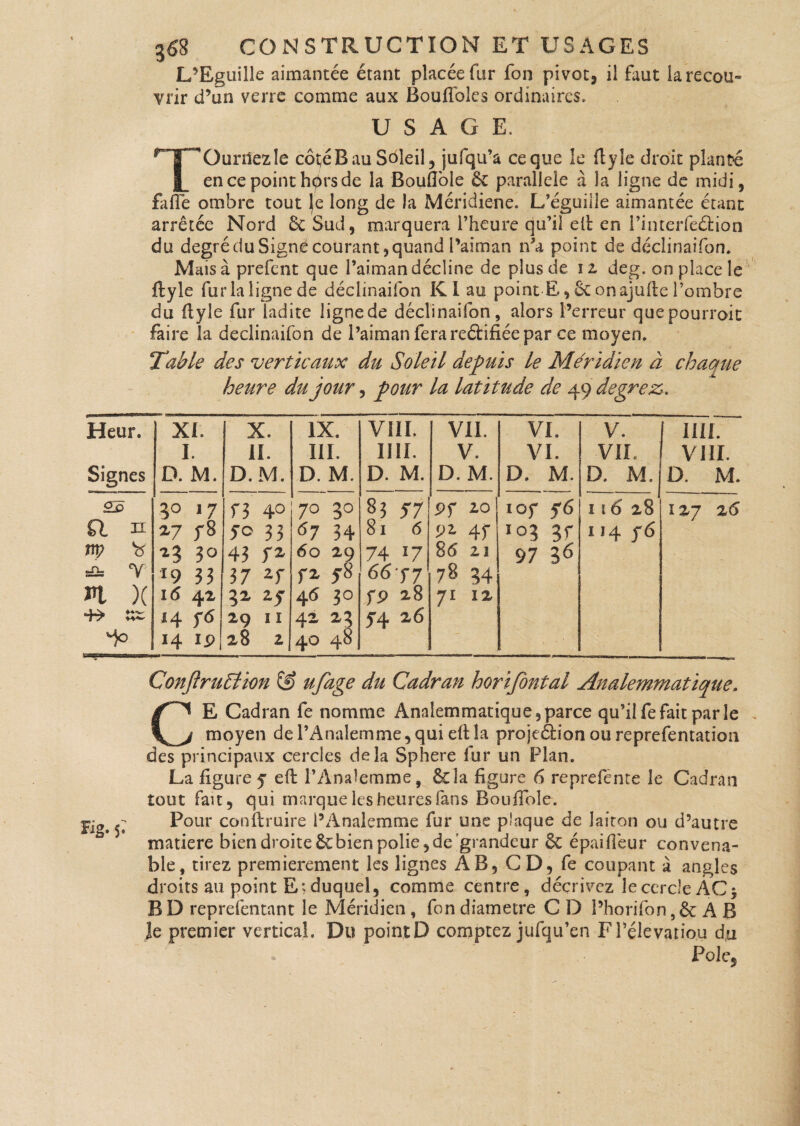 368 CONSTRUCTION ET USAGES
L'Eguille aimantée étant placée ſur ſon pivot, il faut la recou-
vrir d'un verre comme aux Bouſſoles ordinaires.
USAGE.
TOurnez le côté B au Soleil, juſqu'à ce que le ſtyle droit planté
en ce point hors de la Bouſſole & parallele à la ligne de midi,
faſſe ombre tout le long de la Méridiene. L'éguille aimantée étant
arrêtée Nord & Sud, marquera l'heure qu'il eſt en l'interſection
du degré du Signe courant, quand l'aiman n'a point de déclinaiſon.
Mais à preſent que l'aiman décline de plus de 12 deg. on place le
ſtyle ſur la ligne de déclinaiſon K I au point E, & on ajuſte l'ombre
du ſtyle ſur ladite ligne de déclinaiſon, alors l'erreur que pourroit
faire la declinaiſon de l'aiman ſera rectifiée par ce moyen.
Table des verticaux du Soleil depuis le Méridien à chaque
heure du jour, pour la latitude de 49 degrez.
Heur. XI. X. IX. VIII. VII. VI. V. IIII.
I. II. III. IIII. V. VI. VII. VIII.
Signes D. M. D. M. D. M. D. M. D. M. D. M. D. M. D. M.
♋ 30 17 53 40 70 30 83 57 95 20 105 56 116 28 127 26
♌ ♊ 27 58 50 33 67 34 81 6 92 45 103 35 114 56
♍ ♉ 23 30 43 52 60 29 74 17 86 21 97 36
♎ ♈ 19 33 37 25 52 58 66 57 78 34
♏ ♓ 16 42 32 25 46 30 59 28 71 12
♐ ♒ 14 56 29 11 42 23 54 26
♑ 14 19 28 2 40 48
Conſtruction & uſage du Cadran horiſontal Analemmatique.
CE Cadran ſe nomme Analemmatique, parce qu'il ſe fait par le
moyen de l'Analemme, qui eſt la projection ou repreſentation
des principaux cercles de la Sphere ſur un Plan.
La figure 5 eſt l'Analemme, & la figure 6 repreſente le Cadran
tout fait, qui marque les heures ſans Bouſſole.
Fig. 5. Pour conſtruire l'Analemme ſur une plaque de laiton ou d'autre
matiere bien droite & bien polie, de grandeur & épaiſſeur convena-
ble, tirez premierement les lignes A B, C D, ſe coupant à angles
droits au point E; duquel, comme centre, décrivez le cercle AC;
B D repreſentant le Méridien, ſon diametre C D l'horiſon, & A B
le premier vertical. Du point D comptez juſqu'en F l'élevatiou du
Pole,